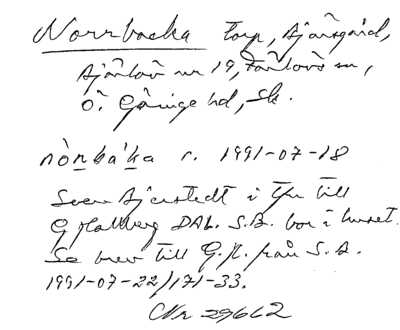 Norrbacka torp, Ajärsgård,
Ajärlöv nr 19, Färlövs sn,
Ö. Göinge hd, Sk.
nòṉbá'ḵa r. 1991-07-18
Sven Bjerstedt i tfn till
G Hallberg DAL. S.B. bor i huset.
Se brev till G.H. från S.B.
1991-07-22/171-33.
Nr 29662